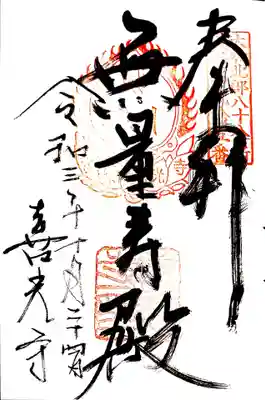 奉拝
無量寿殿
令和三年十月二十四日
喜光寺